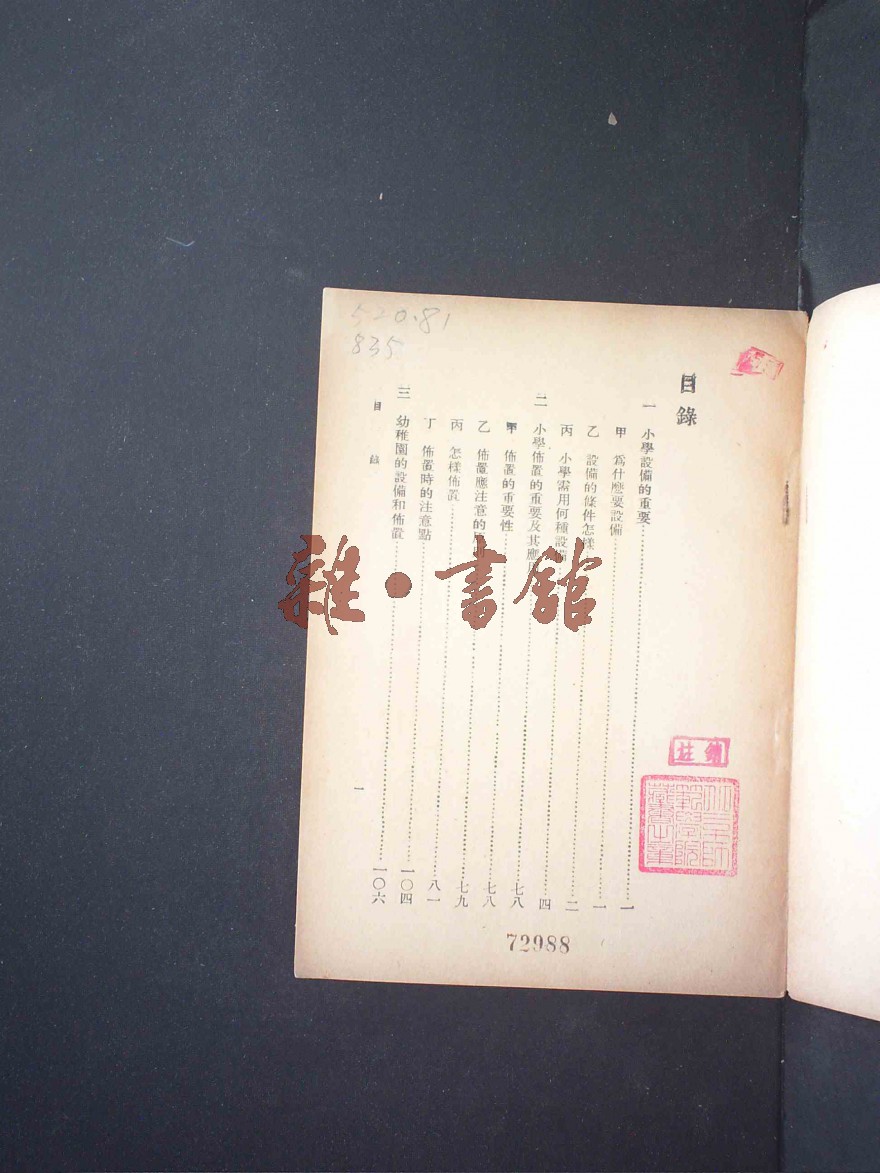 520.81
835
目錄
一 小學設備的重要……一
甲 爲什應要設備……一
乙 設備的條件怎樣……二
丙 小學需用何種設備……四
二 小學佈置的重要及其應……七八
甲 佈置的重要性……七八
乙 佈置應注意的……七九
丙 怎樣佈置……八一
丁 佈置時的注意點……一〇四
三 幼稚園的設備和佈置……一〇六
目錄
一
註銷
72988
雜·書館